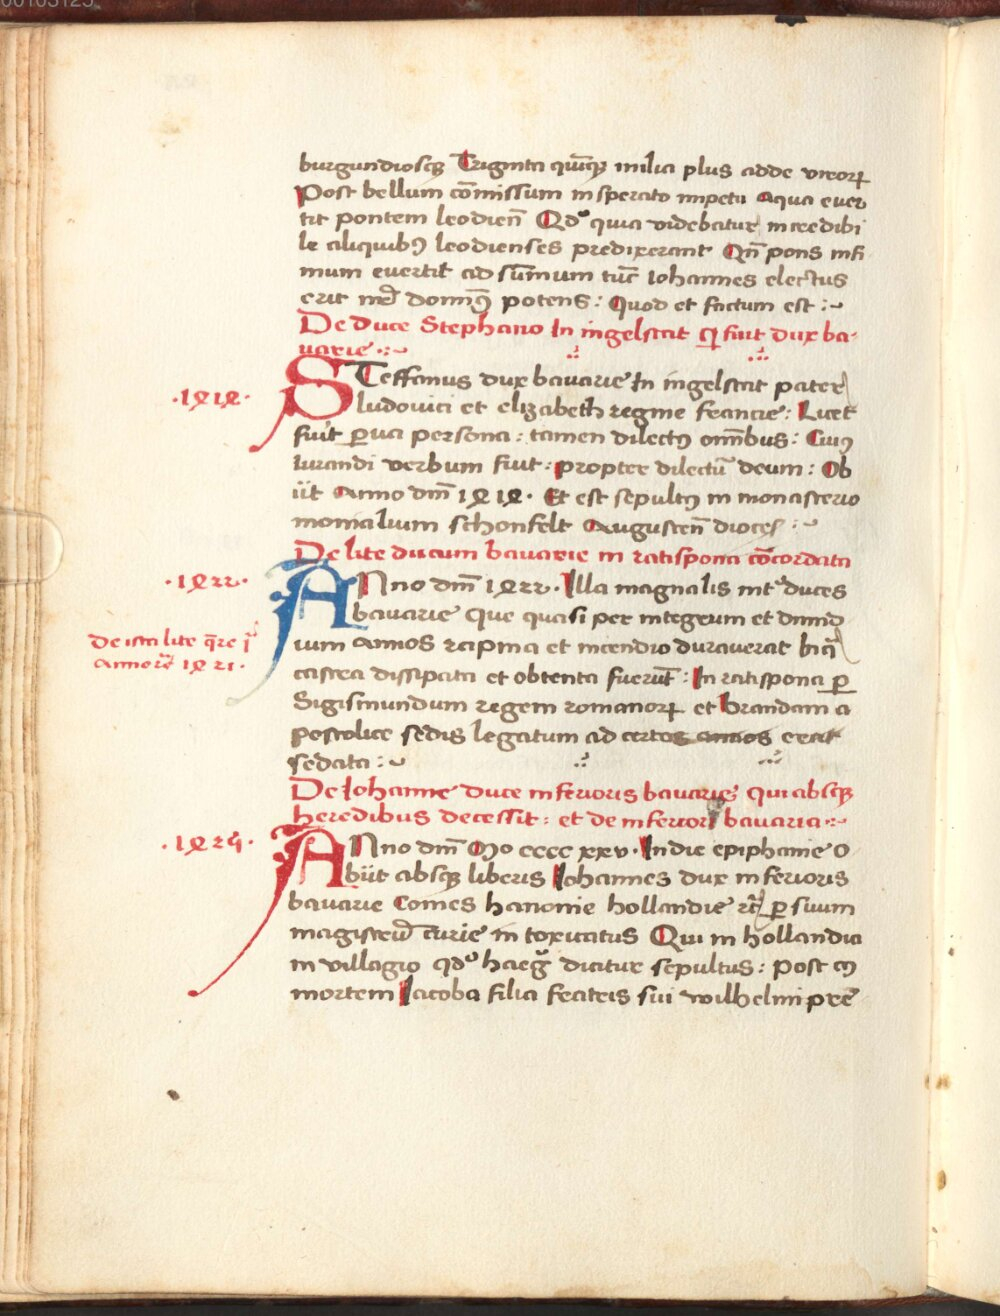 00103125
burgundiosqꝫ Triginta quīqꝫ milia plus adde viroꝝ
Post bellum cōmissum insperato impetu Aqua euer
tit pontem leodieñ Qd° quia videbatur incredibi
le aliquibꝰ leodienses predixerant Qñ pons infi
mum euertit ad sūmum tūc Iohannes electus
erit domnꝰ potens: Quod et factum est :~
De duce Stephano In ingelstat q̄ fuit dux ba-
uarie :~
STeffanus dux bauarie In ingelstat pater
·1414·
ludouici et elizabeth regine francie: Licet
fuit ꝑua persona: tamen dilectꝰ omībus: Cuiꝰ
iurandi verbum fuit: propter dilectū deum: Ob
iit Anno dm̄ 1414· Et est sepultꝰ in monasterio
monialium schonfelt Augusteñ dioces̄ :~
De lite ducum bauarie in ratispona cōcordata
·1422·
ANno dm̄ 1422· Illa magna lis int̄ duces
bauarie Que quasi per integrum et dimid
De ista lite q̄re i
Annorū 1421·
ium annos rapina et incendio durauerat hīcq̄
castra dissipata et obtenta fuerūt: In ratispona ꝑ
Sigismundum regem romanoꝝ et brandam a
postolice sedis legatum ad certos annos erat
sedata :~
De Iohanne duce inferioris bauarie Qui absqꝫ
heredibus decessit: et de inferiori bauaria :~
·1425·
ANno dm̄ Mo cccc xxv· In die epiphanie O
biit absqꝫ liberis Iohannes dux inferioris
bauarie Comes hanonie hollandie rc̄ ꝑ suum
magistrū curie in toxicatus Qui in hollandia
in villagio qd° haeg dicitur sepultus: Post cꝰ
mortem Iacoba filia fratris sui wilhelmi pre